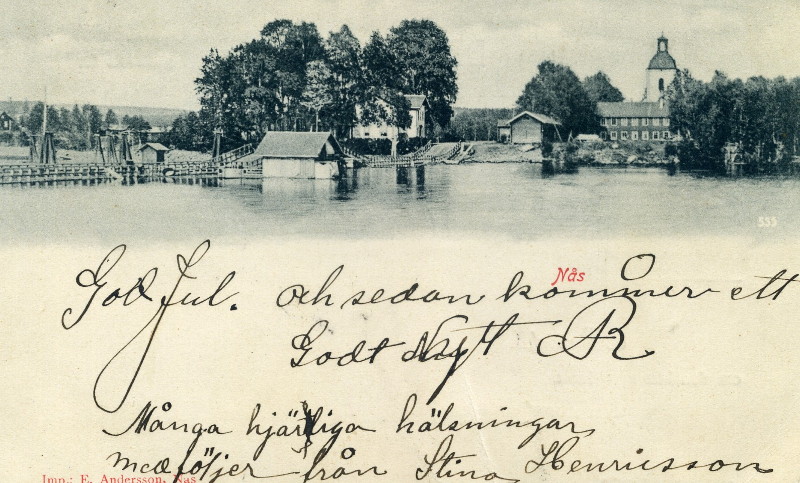 535
Nås
God Jul. och sedan kommer ett
Godt Nytt ÅR
Många hjärtliga hälsningar
medföljer från Stina Henricsson
Imp.: E. Andersson, Nås